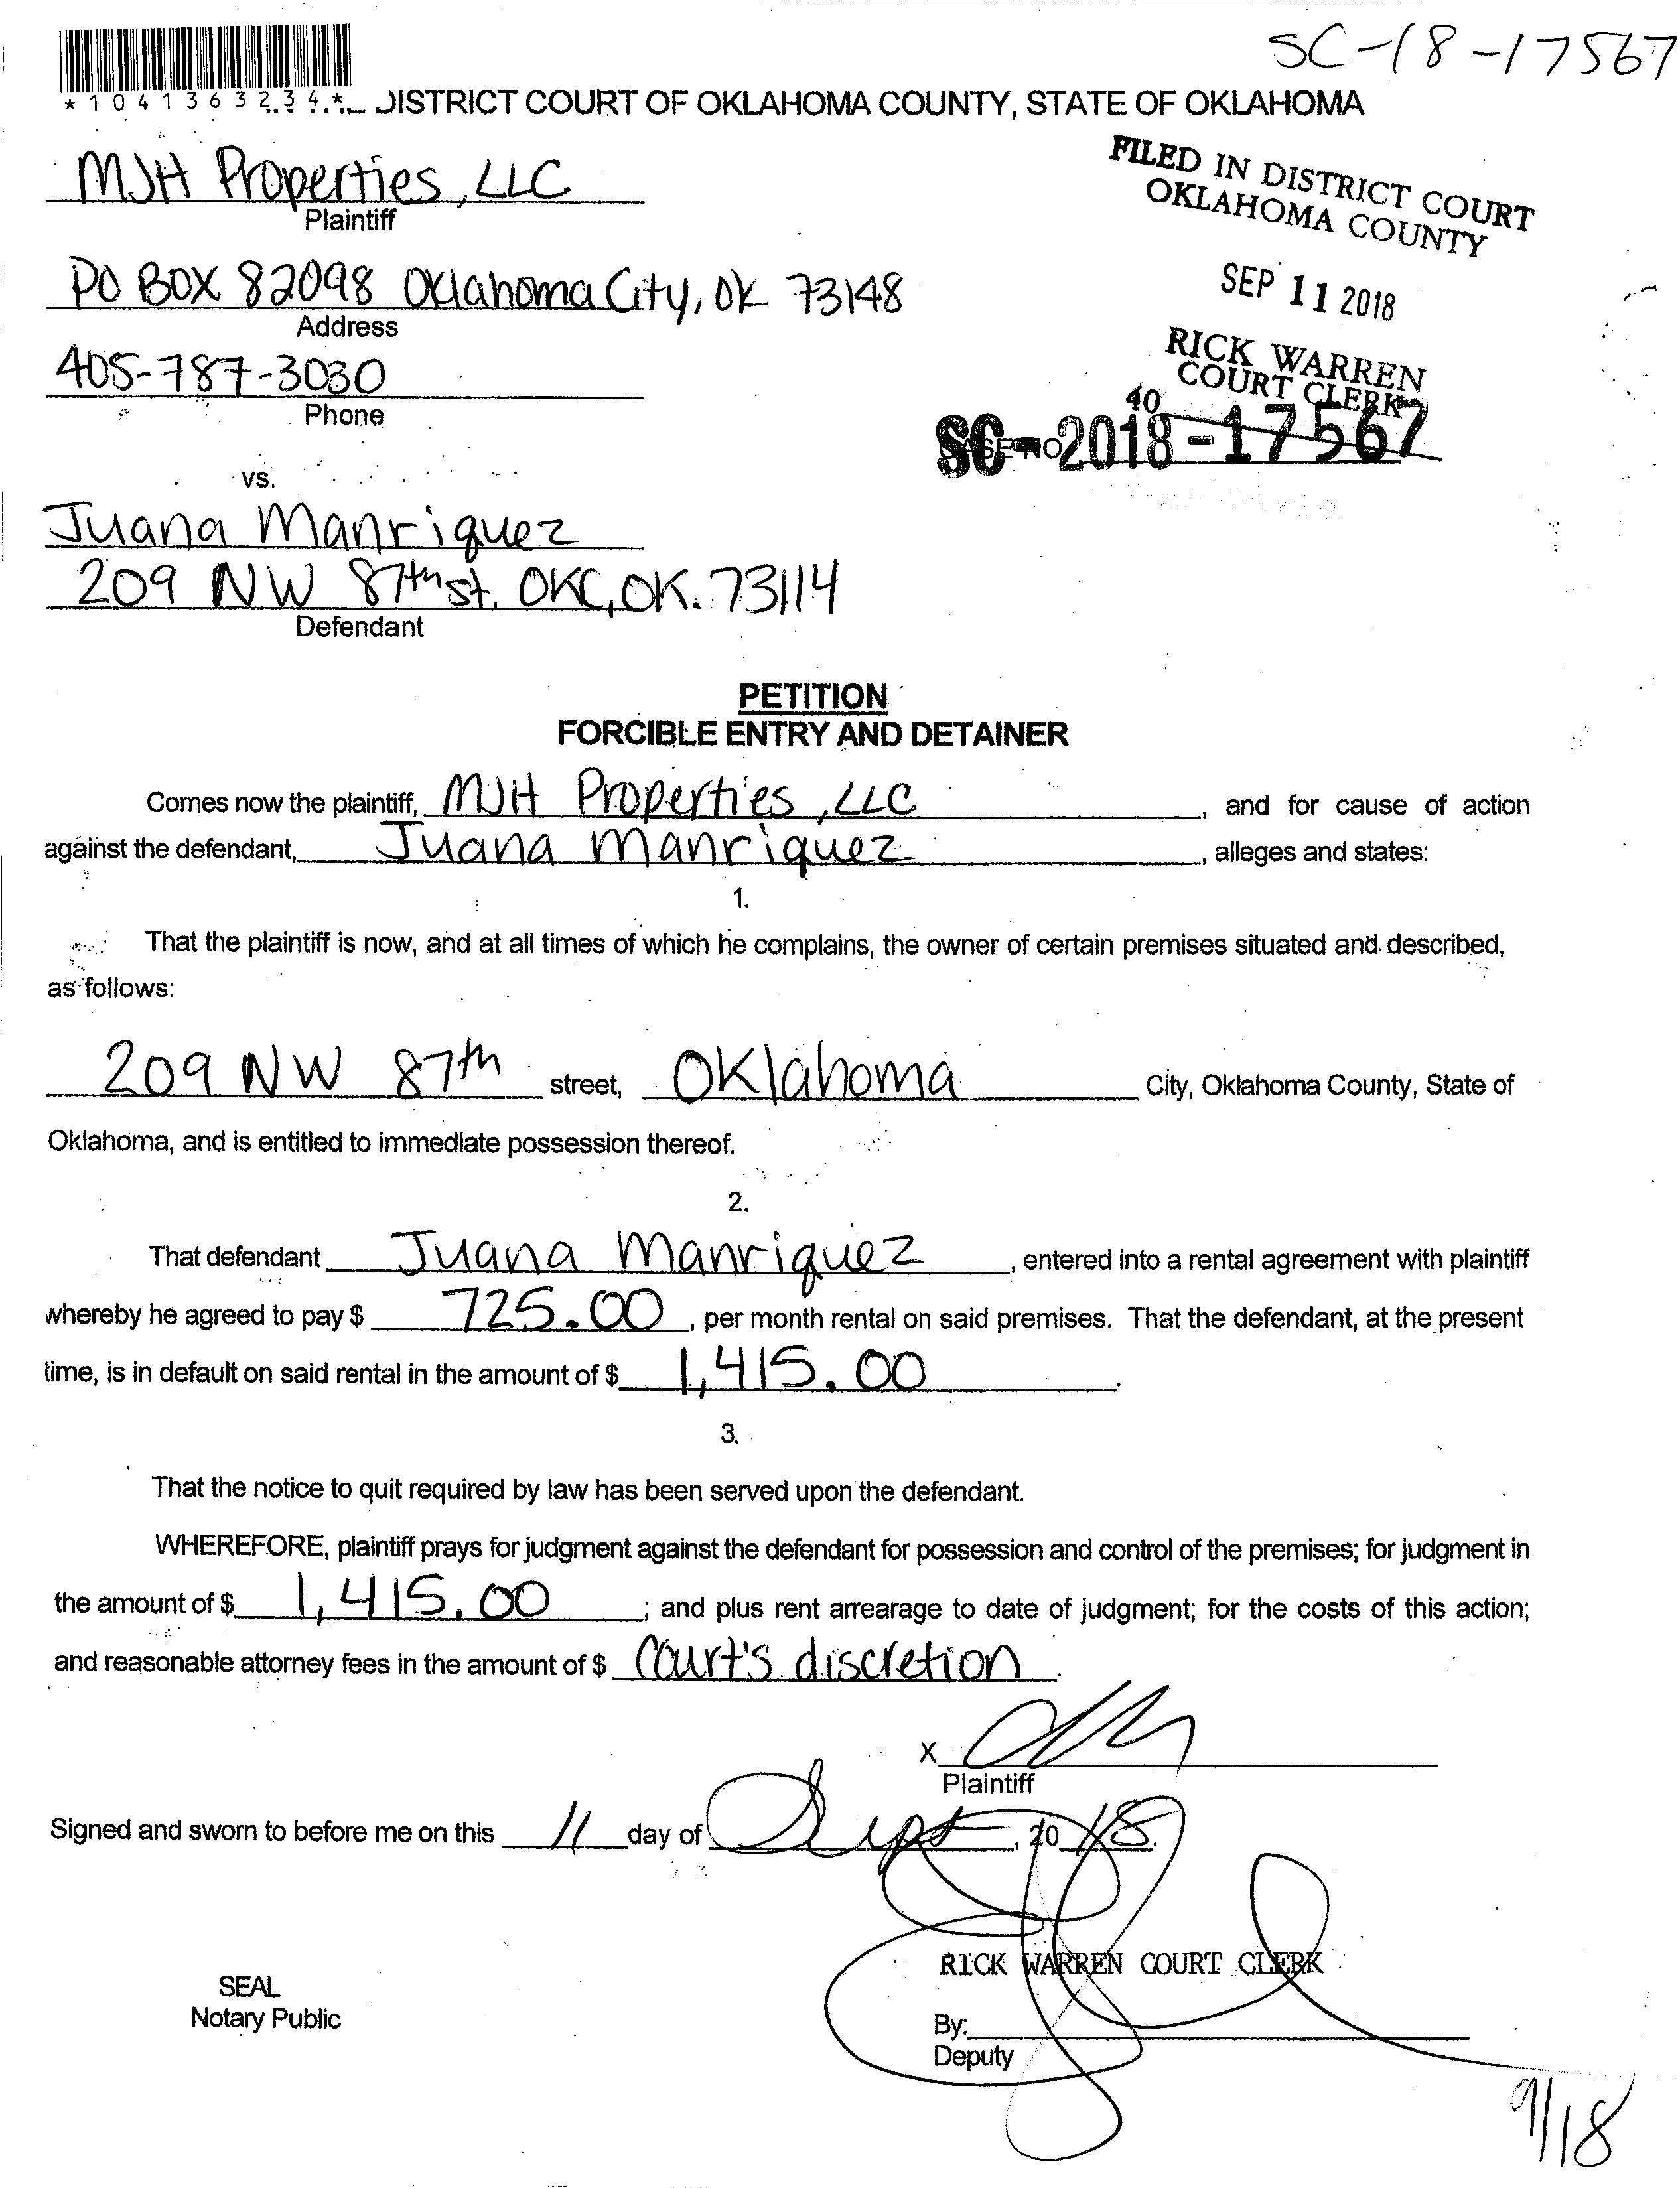 SC-18-17567
*1041363234*
DISTRICT COURT OF OKLAHOMA COUNTY, STATE OF OKLAHOMA
MJH Properties, LLC
Plaintiff
FILED IN DISTRICT COURT
OKLAHOMA COUNTY
PO BOX 82098 Oklahoma City, OK 73148
Address
SEP 11 2018
405-787-3030
Phone
RICK WARREN
COURT CLERK
40
SC-2018-17567
vs.
Juana Manriquez
209 NW 87th st. OKC, OK. 73114
Defendant
PETITION
FORCIBLE ENTRY AND DETAINER
Comes now the plaintiff, MJH Properties, LLC, and for cause of action
against the defendant, Juana Manriquez, alleges and states:
1.
That the plaintiff is now, and at all times of which he complains, the owner of certain premises situated and described,
as follows:
209 NW 87th street, Oklahoma City, Oklahoma County, State of
Oklahoma, and is entitled to immediate possession thereof.
2.
That defendant Juana Manriquez, entered into a rental agreement with plaintiff
whereby he agreed to pay $ 725.00, per month rental on said premises. That the defendant, at the present
time, is in default on said rental in the amount of $ 1,415.00.
3.
That the notice to quit required by law has been served upon the defendant.
WHEREFORE, plaintiff prays for judgment against the defendant for possession and control of the premises; for judgment in
the amount of $ 1,415.00; and plus rent arrearage to date of judgment; for the costs of this action;
and reasonable attorney fees in the amount of $ Court's discretion.
X
Plaintiff
Signed and sworn to before me on this 11 day of Sept, 20 18.
RICK WARREN COURT CLERK
SEAL
Notary Public
By:
Deputy
9/18